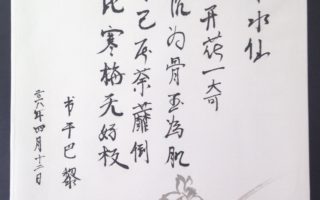 水仙
开花一奇
沉为骨玉为肌
已压荼蘼倒
比寒梅无好枝
书于巴黎
二零一六年四月十二日